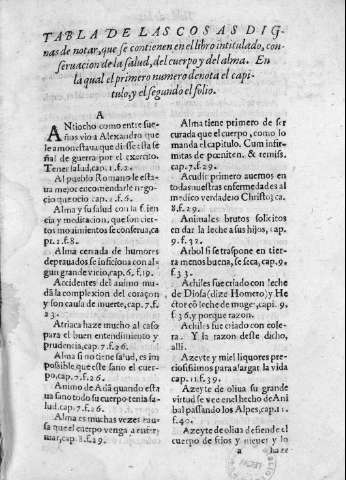 TABLA DE LAS COSAS DIG-
nas de notar, que se contienen en el libro intitulado, con-
seruacion de la salud, del cuerpo y del alma. En
la qual el primero numero denota el capi-
tulo, y el segundo el folio.
A
ANtiocho como entre sue-
ños vio a Alexandro que
le amonestaua que diesse esta se
ñal de guerra por el exercito.
Tener salud, cap. 1. f. 2.
Al pueblo Romano le esta-
ua mejor encomendarle nego-
cio que ocio cap. 2. f. 6.
Alma y su salud con la sciencia
y medicacion, que son cier
tos mouimientos se conserua, ca
pi. 2. f. 8.
Alma cercada de humores
deprauados se inficiona con al
gun grande vicio, cap. 6. f. 19.
Accidentes del animo mu-
dã la complexion del coraçon
y son causa de muerte, cap. 7. f.
23.
Atriaca haze mucho al caso
para el buen entendimiento y
prudencia, cap. 7. f. 26.
Alma si no tiene salud, es im
possible, que este sano el cuer-
po, cap. 7. f. 26.
Animo de Adã quando esta
ua sano todo su cuerpo tenia sa-
lud, cap. 7. f. 26.
Alma es muchas vezes cau-
sa que el cuerpo venga a enfer
mar, cap. 8. f. 29.
Alma tiene primero de ser
curada que el cuerpo, como lo
manda el capitulo. Cum infir-
mitas de pœniten. & remiss.
cap. 7. f. 29.
Acudir primero auemos en
todas nuestras enfermedades al
medico verdadero Christo, ca.
8. f. 29.
Animales brutos solicitos
en dar la leche a sus hijos, cap.
9. f. 32.
Arbol si se traspone en tier-
ra menos buena, se seca, cap. 9.
f. 33.
Achiles fue criado con leche
de Diosa (dize Homero) y He
ctor cõ leche de muger, capi. 9.
f. 36. y porque razon.
Achiles fue criado con cole-
ra. Y la razon deste dicho,
alli.
Azeyte y miel liquores pre-
ciosissimos para alargar la vida
cap. 11. f. 39.
Azeyte de oliua su grande
virtud se vee en el hecho de Ani
bal passando los Alpes, cap. 11.
f. 40.
Azeyte de oliua defiende el
cuerpo de frios y nieues y lo
a haze